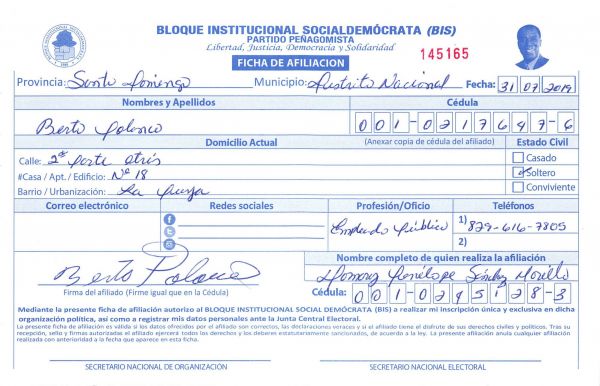 BLOQUE INSTITUCIONAL SOCIALDEMÓCRATA (BIS)
PARTIDO PEÑAGOMISTA
Libertad, Justicia, Democracia y Solidaridad
FICHA DE AFILIACION
145165
Provincia: Santo Domingo Municipio: Distrito Nacional Fecha: 31 07 2019
Nombres y Apellidos Cédula
Berto Polanco 001-0217647-6
Domicilio Actual (Anexar copia de cédula del afiliado) Estado Civil
Calle: 2da parte atrás Casado
#Casa / Apt. / Edificio: Nº 18 Soltero
Barrio / Urbanización: La Conviviente
Correo electrónico Redes sociales Profesión/Oficio Teléfonos
Empleado Público 1) 829-616-7805
2)
Nombre completo de quien realiza la afiliación
Berto Polanco Penélope Sánchez Morillo
Firma del afiliado (Firme igual que en la Cédula) Cédula: 001-0295128-3
Mediante la presente ficha de afiliación autorizo al BLOQUE INSTITUCIONAL SOCIAL DEMÓCRATA (BIS) a realizar mi inscripción única y exclusiva en dicha
organización política, así como a registrar mis datos personales ante la Junta Central Electoral.
La presente ficha de afiliación es válida si los datos ofrecidos por el afiliado son correctos, las declaraciones veraces y si el afiliado tiene el disfrute de sus derechos civiles y políticos. Tras su
recepción, sello y firmas autorizadas el afiliado ejercerá todos los derechos y los deberes estatutariamente sancionados, de acuerdo a la ley. La presente afiliación anula cualquier afiliación
realizada con anterioridad a la fecha que aparece en esta ficha.
SECRETARIO NACIONAL DE ORGANIZACIÓN SECRETARIO NACIONAL ELECTORAL